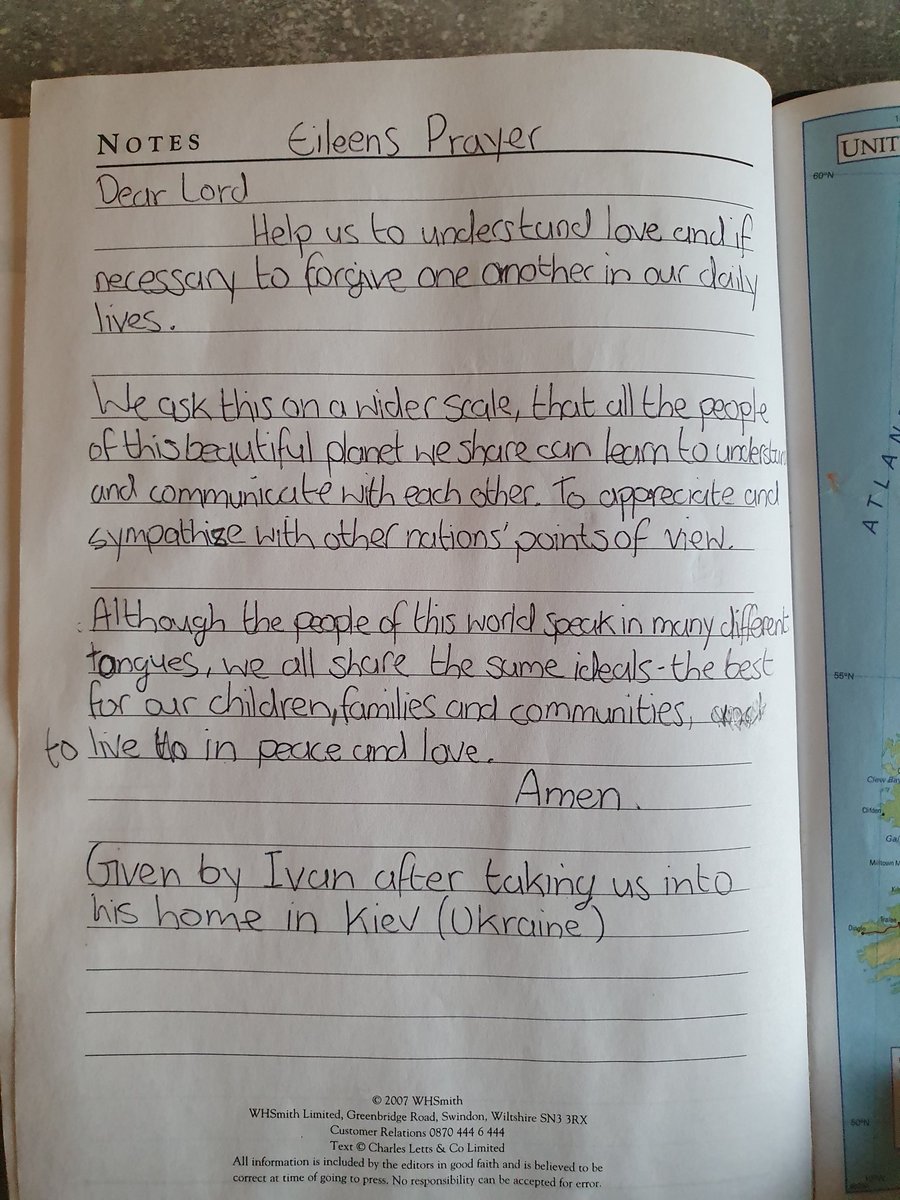 NOTES Eileens Prayer
Dear Lord
Help us to understand love and if
necessary to forgive one another in our daily
lives.
We ask this on a wider scale, that all the people
of this beautiful planet we share can learn to understan
and communicate with each other. To appreciate and
sympathize with other nations' points of view.
Although the people of this world speak in many different
tongues, we all share the same ideals - the best
for our children, families and communities,
to live in peace and love.
Amen.
Given by Ivan after taking us into
his home in Kiev (Ukraine)
© 2007 WHSmith
WHSmith Limited, Greenbridge Road, Swindon, Wiltshire SN3 3RX
Customer Relations 0870 444 6 444
Text © Charles Letts & Co Limited
All information is included by the editors in good faith and is believed to be
correct at time of going to press. No responsibility can be accepted for error.
UNIT
60°N
ATLAN
55°N
Clew Bay
Clifden
Dingle
Tralee
50°N